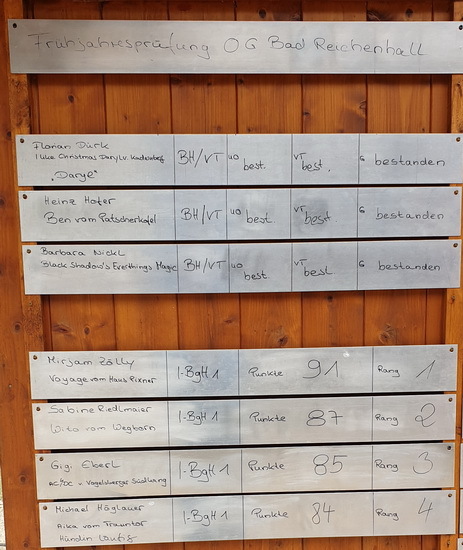 Frühjahresprüfung OG Bad Reichenhall
Florian Dürk BH/VT UO best. VT best. G bestanden
I like Christmas Daryl v.
"Daryl"
Heinz Hofer BH/VT UO best. VT best G bestanden
Ben vom Patscherkofel
Barbara Nickl BH/VT UO best. VT best G bestanden
Black Shadow's Everthings Magic
Mirjam Zölly I-BgH 1 Punkte 91 Rang 1
Voyage vom Haus Pixner
Sabine Riedlmaier I-BgH 1 Punkte 87 Rang 2
Wito vom Wegborn
Gigi Eberl I-BgH 1 Punkte 85 Rang 3
AC/DC v. Vogelsberger Südhang
Michael Höglauer I-BgH 1 Punkte 84 Rang 4
Aika vom Frauntor
Hündin läufig